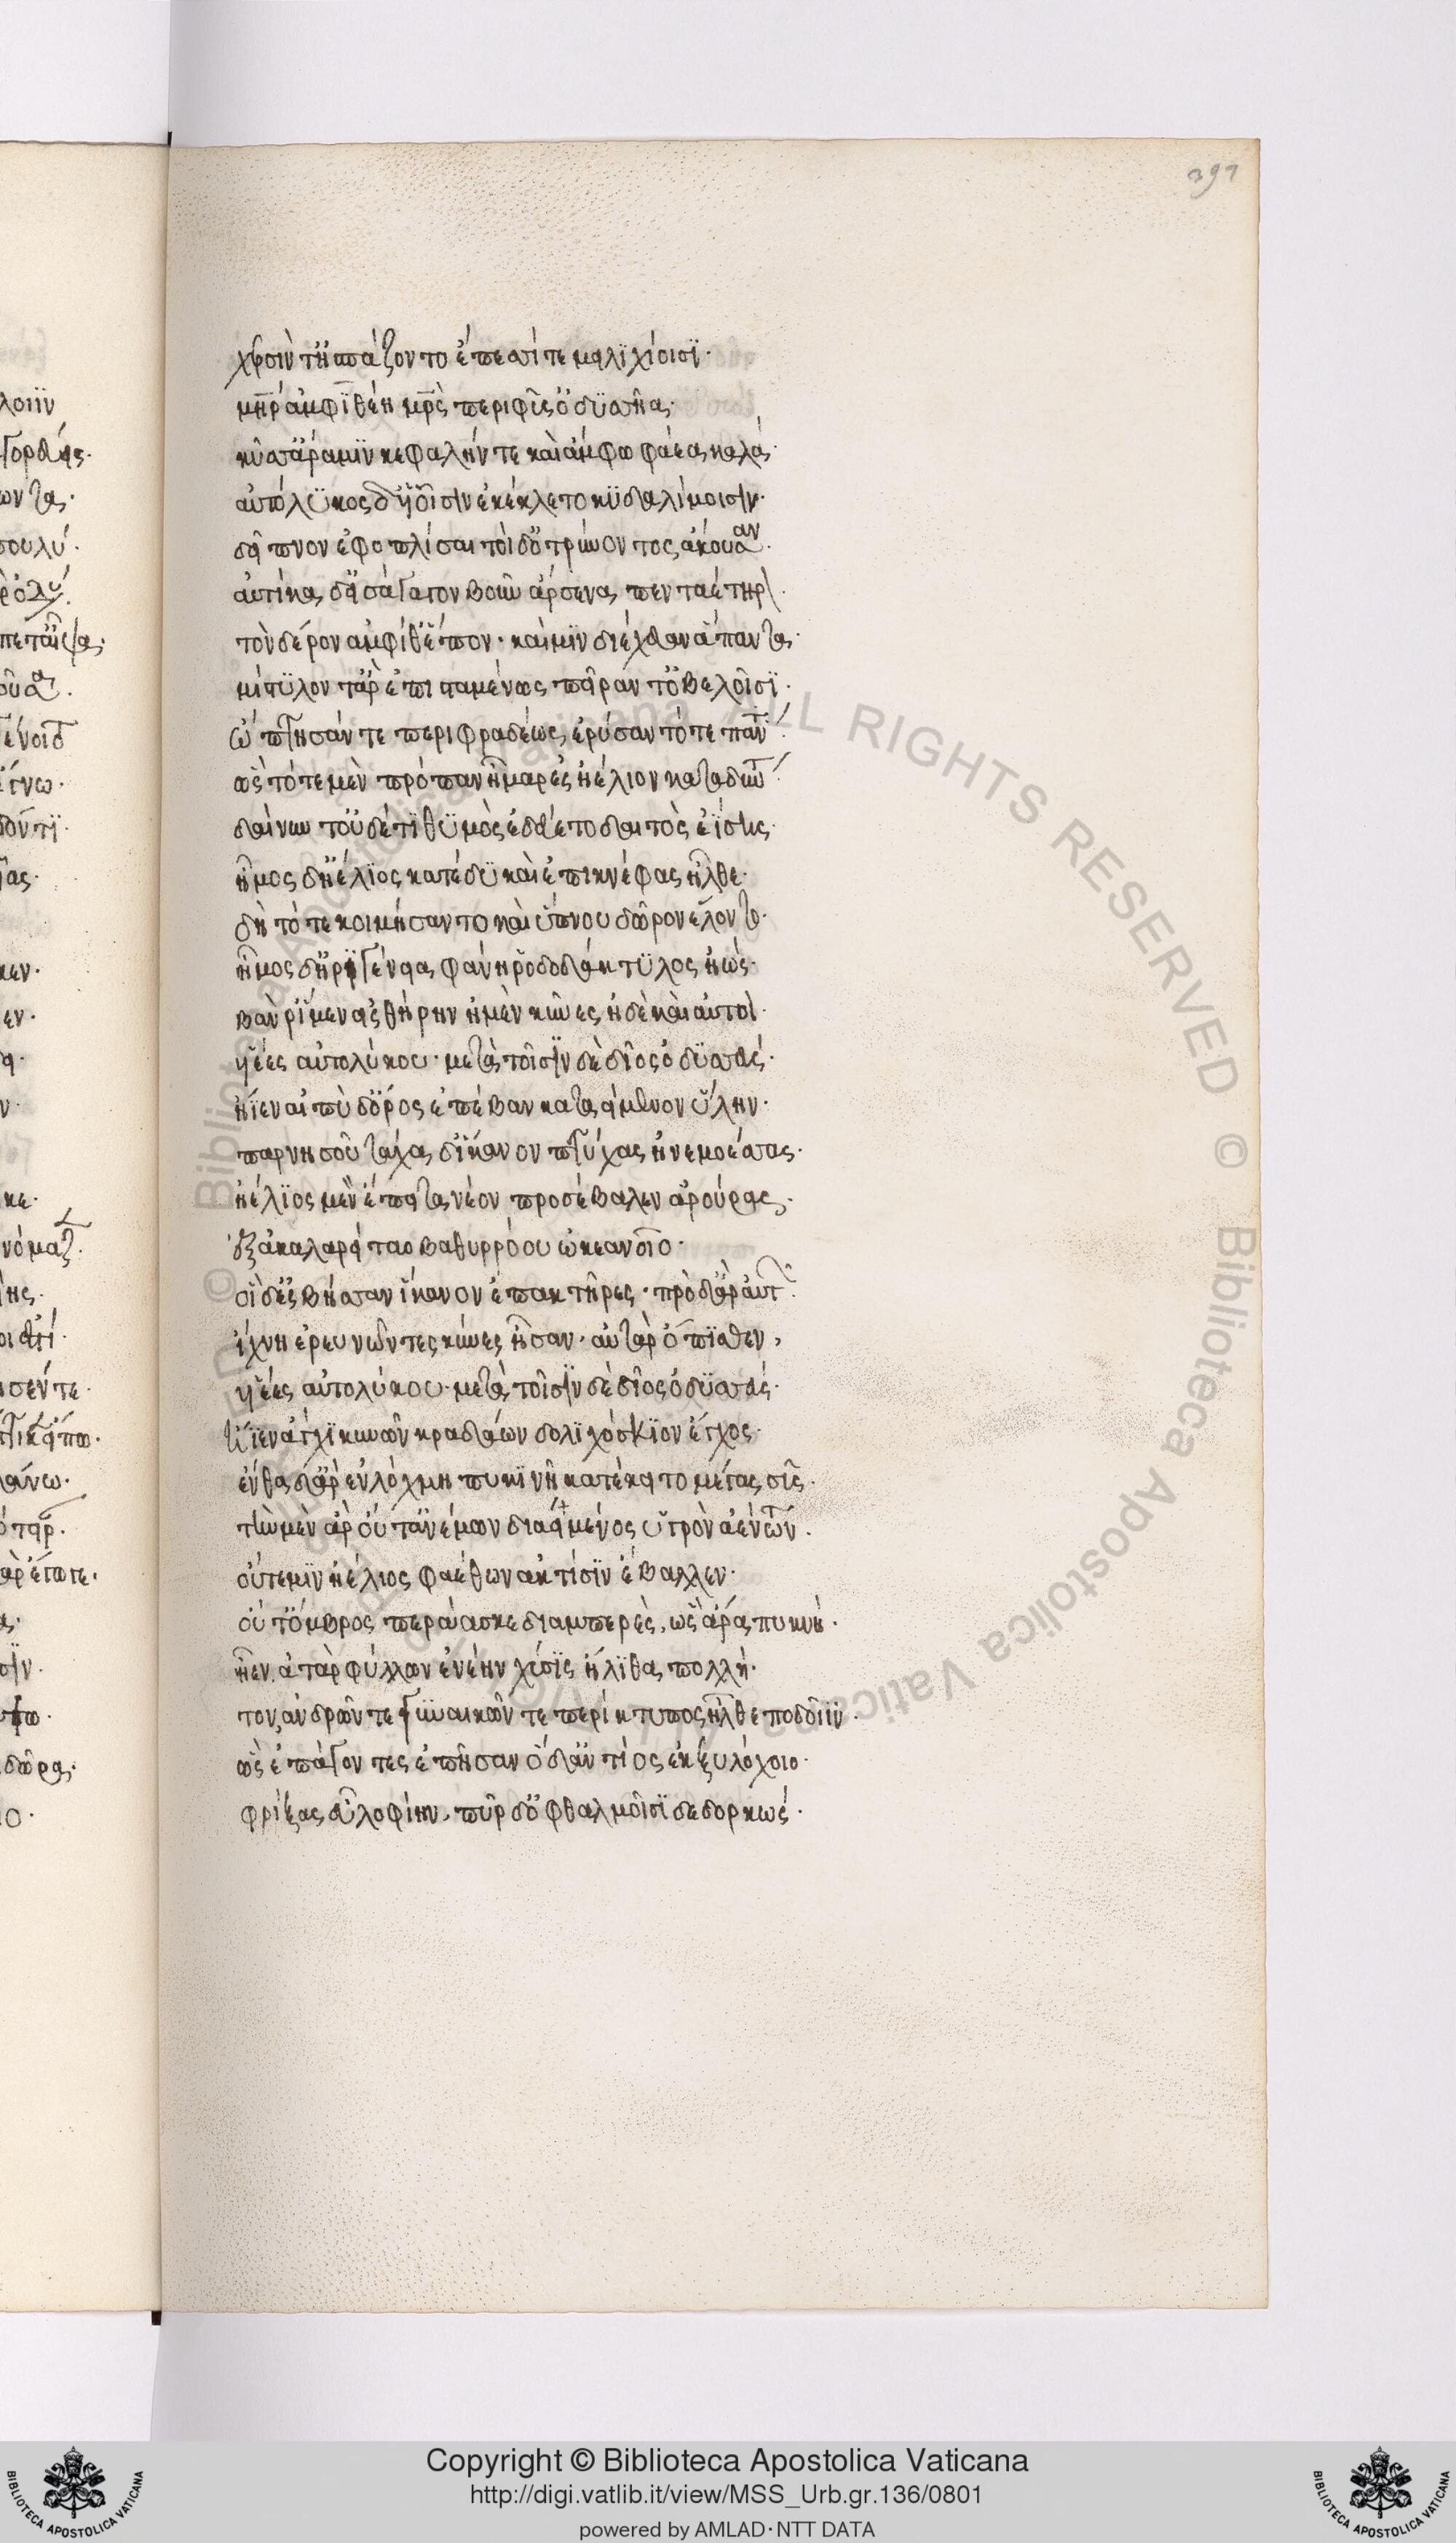 391
χερσὶν τ' ἠσπάζοντο ἔπεσσί τε μειλιχίοισι·
μηρ ἀμφιθέη μρὸς περιφῦσ' ὀδυσσῆα·
κύσσ' ἄρα μιν κεφαλήν τε καὶ ἄμφω φάεα καλά·
αὐτόλυκος δ' υἱοῖσιν ἐκέκλετο κυδαλίμοισιν·
δεῖπνον ἐφοπλίσαι τοὶ δ' ὀτρύνοντος ἄκουσαν·
αὐτίκα δ' εἰσάγαγον βοῦν ἄρσενα πενταέτηρ
τὸν δέρον ἀμφί θ' ἕπον· καί μιν διέχευαν ἅπαντα·
μίστυλον τ' ἄρ' ἐπισταμένως πεῖράν τ' ὀβελοῖσι·
ὤπτησάν τε περιφραδέως, ἐρύσαντό τε παντ
ὣς τότε μὲν πρόπαν ἦμαρ ἐς ἠέλιον καταδύντ
δαίνυντ' οὐδέ τι θυμὸς ἐδεύετο δαιτὸς ἐΐσης·
ἦμος δ' ἠέλιος κατέδυ καὶ ἐπι κνέφας ἦλθε·
δὴ τότε κοιμήσαντο καὶ ὕπνου δῶρον ἕλοντο·
ἦμος δ' ἠριγένεια φάνη ῥοδοδάκτυλος ἠώς·
βάν ῥ' ἴμεν ἐς θήρην ἠμὲν κύνες, ἠδὲ καὶ αὐτοὶ·
υἱέες αὐτολύκου· μετὰ τοῖσιν δὲ δῖος ὀδυσσεύς·
ἤϊεν αἰπὺ δ' ὄρος ἐπέβαν καταείμενον ὕλην·
παρνησοῦ τάχα δ' ἵκανον πτύχας ἠνεμοέσσας·
ἠέλιος μὲν ἔπειτα νέον προσέβαλεν ἀρούρας·
ἐξ ἀκαλαρείταο βαθυρρόου ὠκεανοῖο·
οἱ δ' ἐς βῆσσαν ἵκανον ἐπακτῆρες· πρὸ δ' ἄρ' αὐτ
ἴχνη ἐρευνῶντες κύνες ἦσαν· αὐτὰρ ὄπισθεν,
υἱέες αὐτολύκου· μετὰ τοῖσιν δὲ δῖος ὀδυσσεύς·
ἤϊεν ἄγχι κυνῶν κραδάων δολιχόσκιον ἔγχος·
ἔνθα δ' ἄρ' ἐν λόχμῃ πυκινῇ κατέκειτο μέγας σῦς·
τὴν μὲν ἄρ' οὔτ' ἀνέμων διαει μένος ὑγρὸν ἀέντων·
οὔτε μιν ἠέλιος φαέθων ἀκτῖσιν ἔβαλλεν·
οὔτ' ὄμβρος περάασκε διαμπερὲς, ὣς ἄρα πυκνὴ·
ἦεν, ἀτὰρ φύλλων ἐνέην χύσις ἤλιθα πολλή·
τον, ἀνδρῶν τε γυναικῶν τε περίκτυπος ἦλθε ποδοῖιν·
ὣς ἐπάγοντες ἐπῆσαν ὁ δ' ἀντίος ἐκ ξυλόχοιο·
φρίξας εὖ λοφίην, πῦρ δ' ὀφθαλμοῖσι δεδορκώς·
ALL RIGHTS RESERVED © Biblioteca Apostolica Vaticana
Copyright © Biblioteca Apostolica Vaticana
http://digi.vatlib.it/view/MSS_Urb.gr.136/0801
powered by AMLAD·NTT DATA
BIBLIOTECA APOSTOLICA VATICANA
BIBLIOTECA APOSTOLICA VATICANA